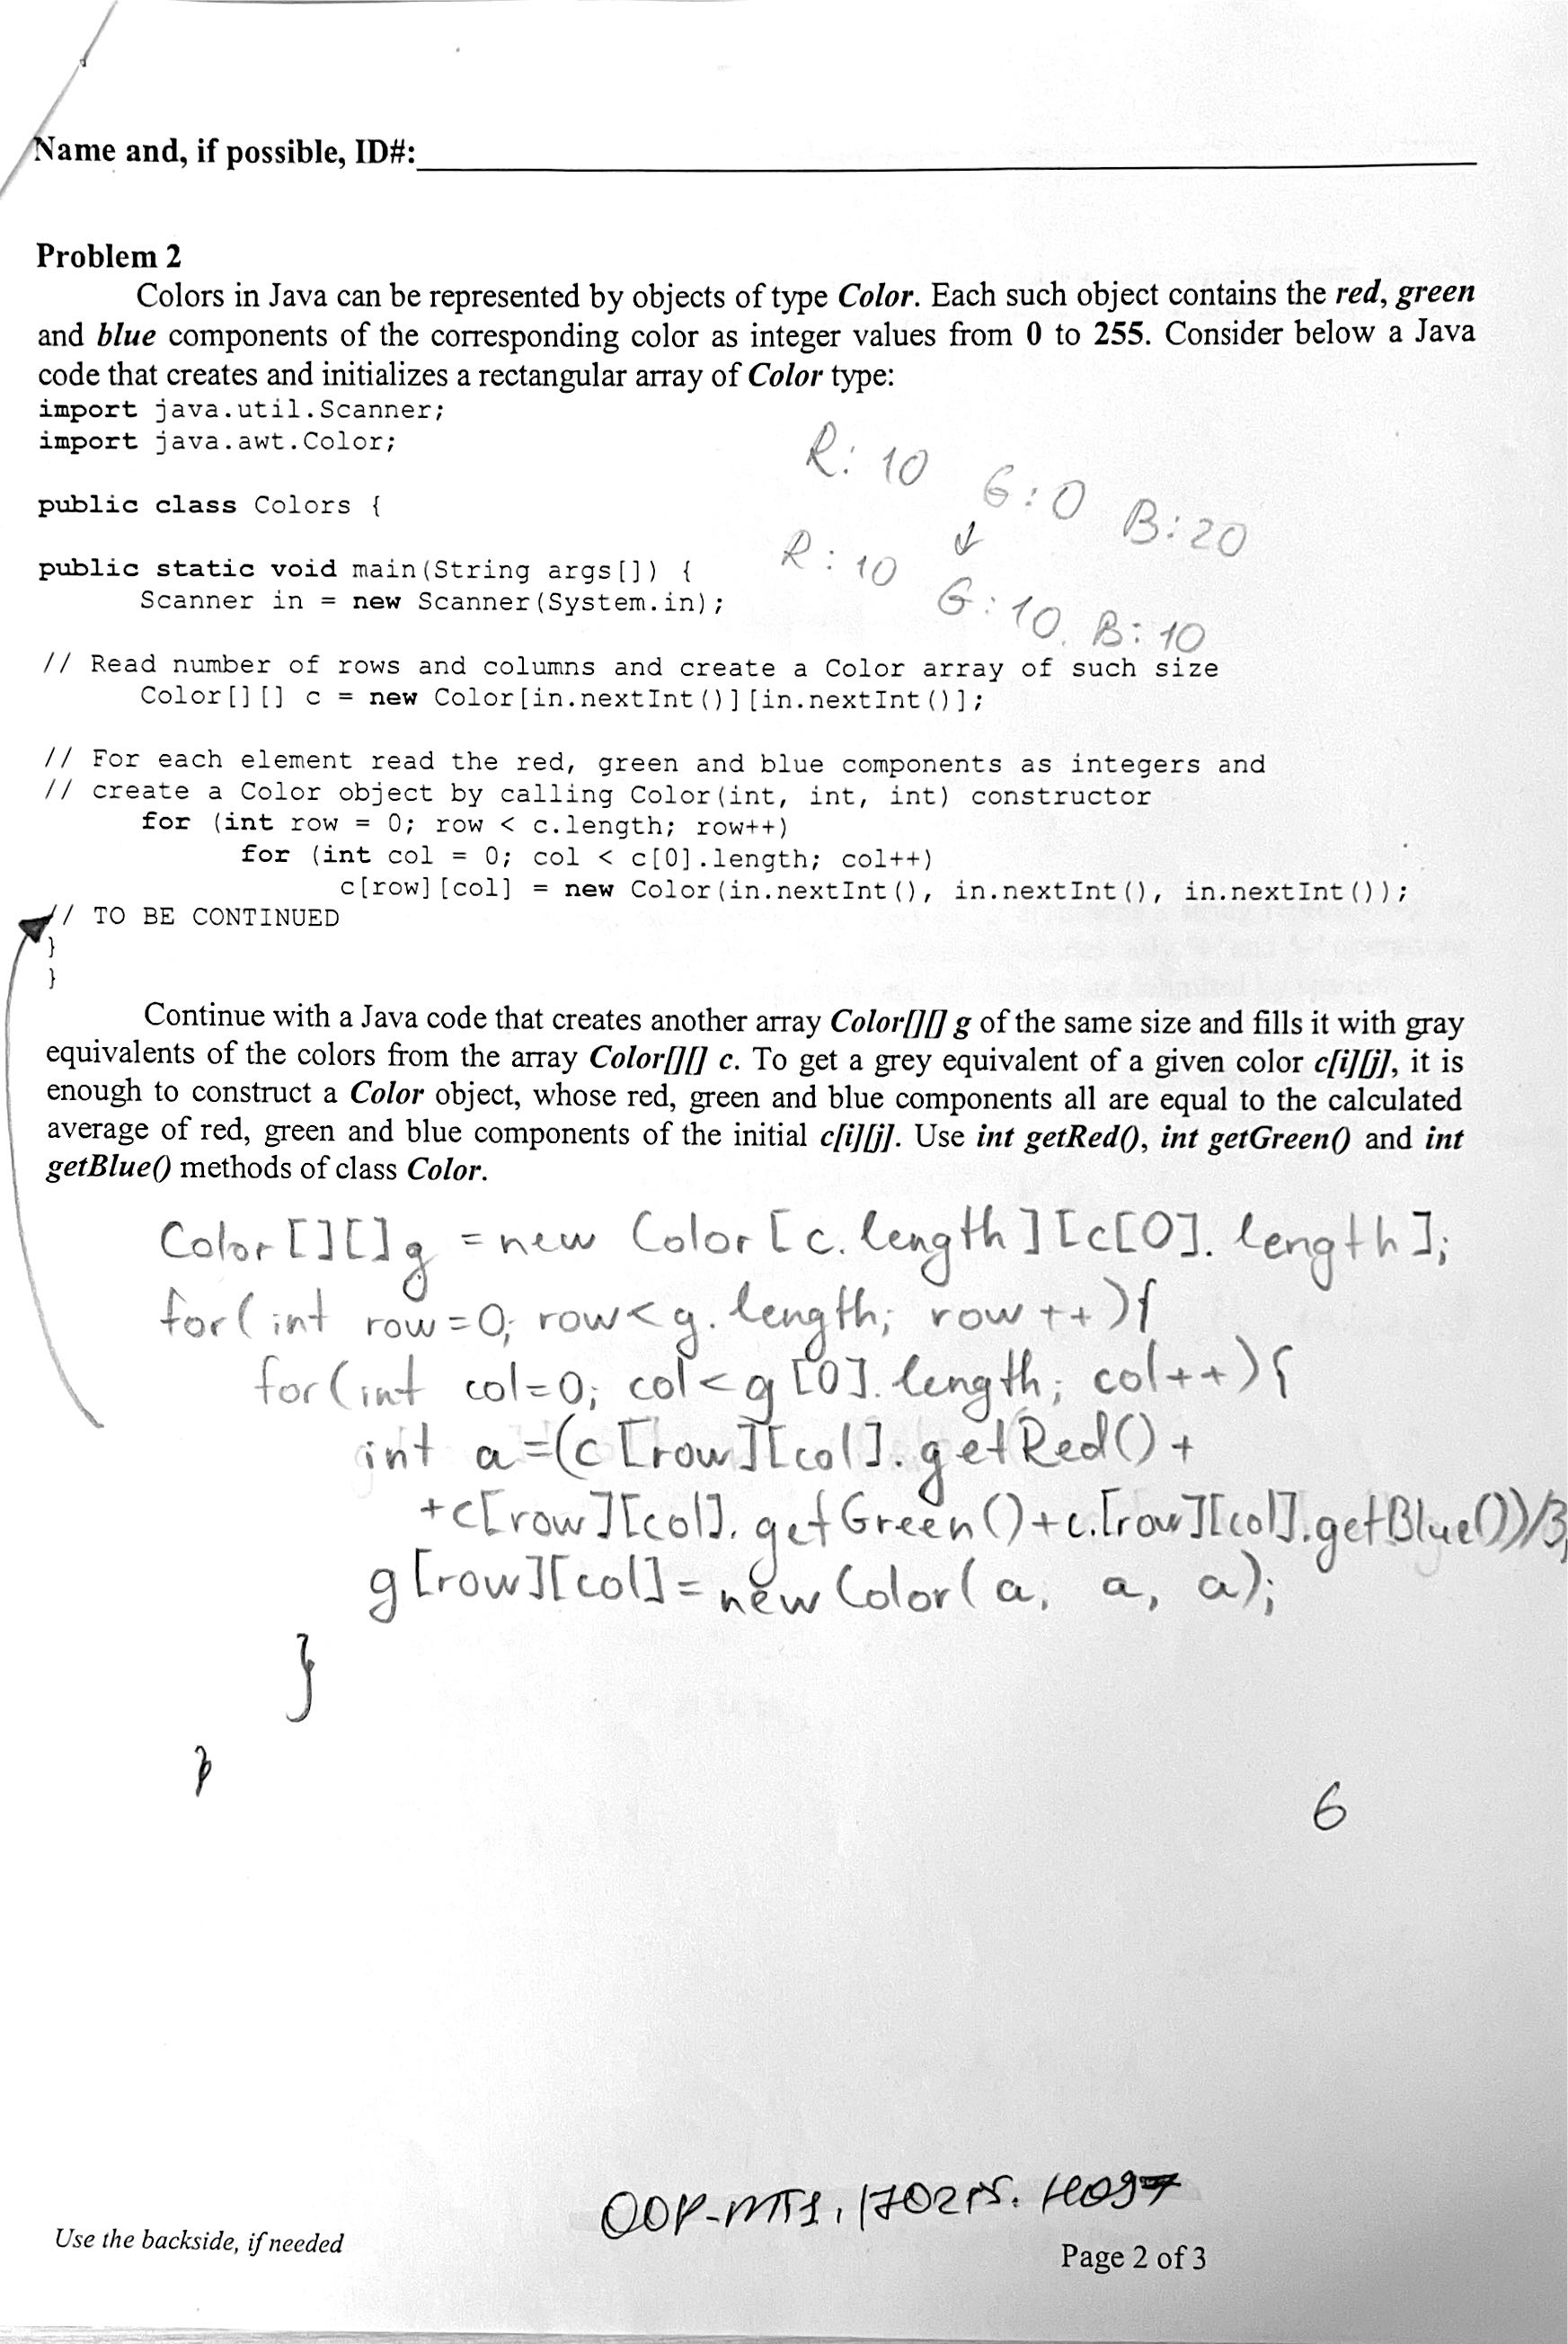 Name and, if possible, ID#:
Problem 2
Colors in Java can be represented by objects of type Color. Each such object contains the red, green
and blue components of the corresponding color as integer values from 0 to 255. Consider below a Java
code that creates and initializes a rectangular array of Color type:
import java.util.Scanner;
import java.awt.Color;
R: 10 G:0 B:20
public class Colors {
R:10 G:10. B:10
public static void main(String args[]) {
Scanner in = new Scanner(System.in);
// Read number of rows and columns and create a Color array of such size
Color[][] c = new Color[in.nextInt()][in.nextInt()];
// For each element read the red, green and blue components as integers and
// create a Color object by calling Color(int, int, int) constructor
for (int row = 0; row < c.length; row++)
for (int col = 0; col < c[0].length; col++)
c[row][col] = new Color(in.nextInt(), in.nextInt(), in.nextInt());
// TO BE CONTINUED
}
}
Continue with a Java code that creates another array Color[][] g of the same size and fills it with gray
equivalents of the colors from the array Color[][] c. To get a grey equivalent of a given color c[i][j], it is
enough to construct a Color object, whose red, green and blue components all are equal to the calculated
average of red, green and blue components of the initial c[i][j]. Use int getRed(), int getGreen() and int
getBlue() methods of class Color.
Color[][]g = new Color[c.length][c[0].length];
for(int row=0; row<g.length; row++){
for(int col=0; col<g[0].length; col++){
int a=(c[row][col].getRed()+
+c[row][col].getGreen()+c.[row][col].getBlue())/3;
g[row][col]=new Color(a, a, a);
}
}
6
Use the backside, if needed
Page 2 of 3